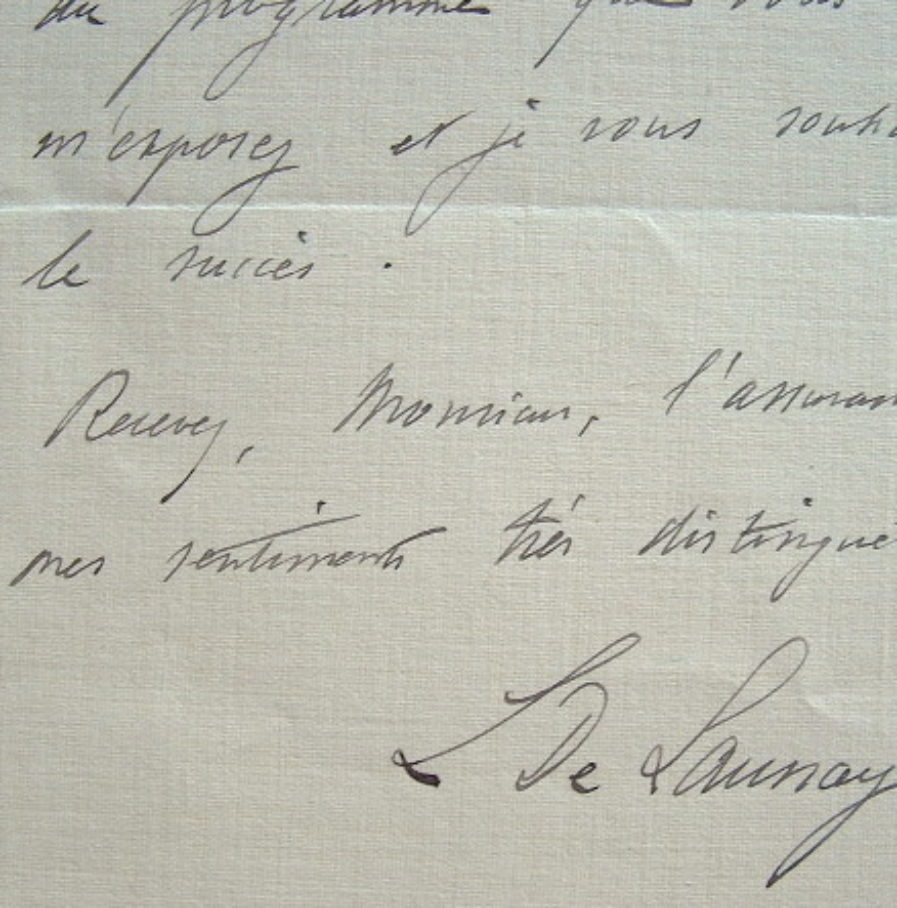 du programme que vous
m'exposez et je vous souha
le succès.
Recevez, Monsieur, l'assuran
mes sentiments très distingué
L De Launay